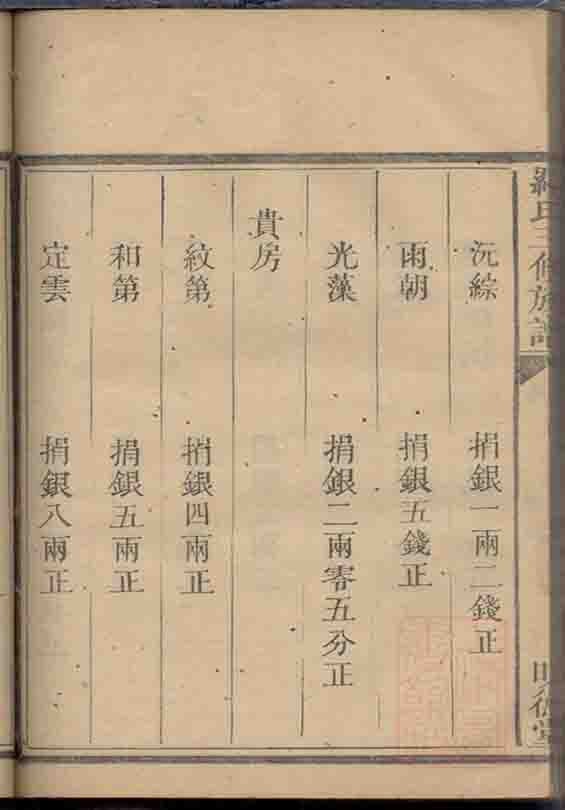 氏三修族譜
沅綜 捐銀一兩二錢正
雨朝 捐銀五錢正
光藻 捐銀二兩零五分正
貴房
紋第 捐銀四兩正
和第 捐銀五兩正
定雲 捐銀八兩正